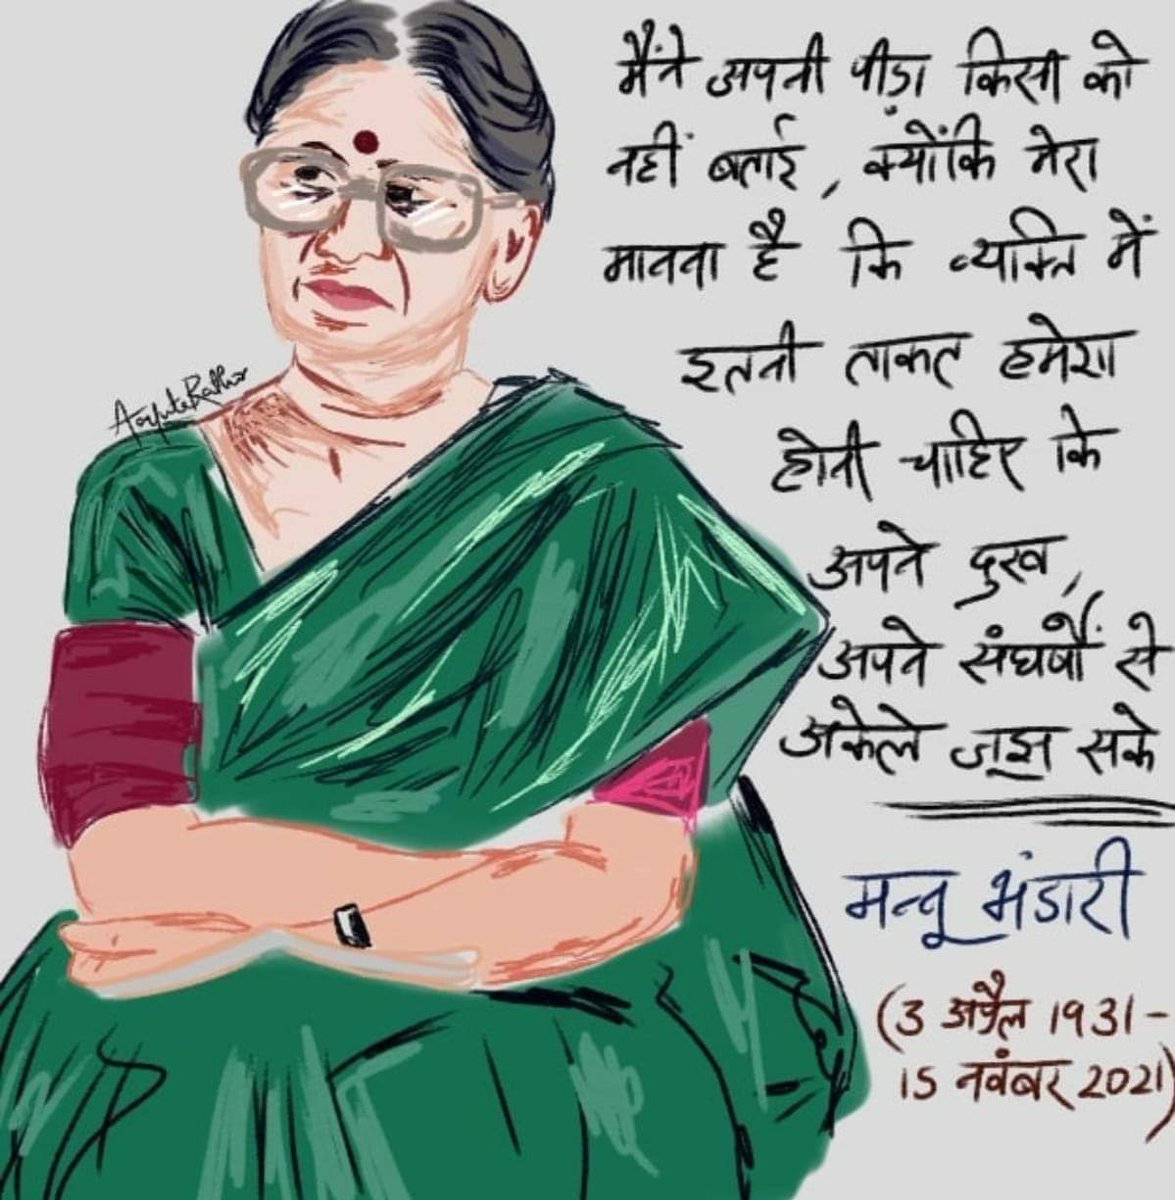 मैंने अपनी पीड़ा किसी को
नहीं बताई, क्योंकि मेरा
मानना है कि व्यक्ति में
इतनी ताकत हमेशा
होनी चाहिए कि
अपने दुख,
अपने संघर्षों से
अकेले जूझ सके
मन्नू भंडारी
(3 अप्रैल 1931-
15 नवंबर 2021)